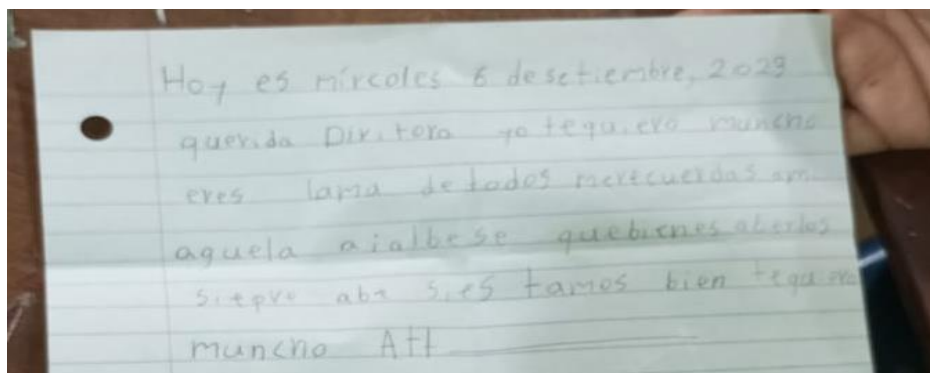 Hoy es mircoles 6 de setiembre, 2023
querida Diritora yo tequiero muncho
eres lama detodos merecuerdas ami
aguela aialbese quebienes aberlos
siepre abr siestamos bien tequiero
muncho Att